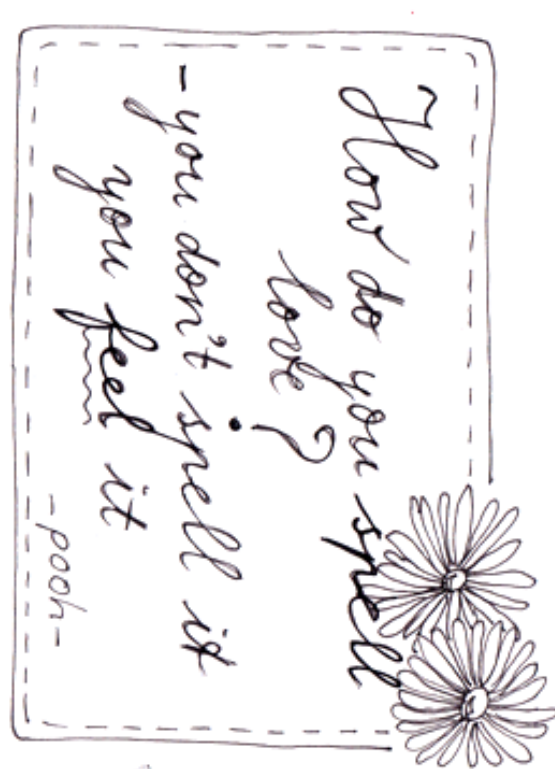 How do you spell
love?
-you don't spell it
you feel it
-pooh-